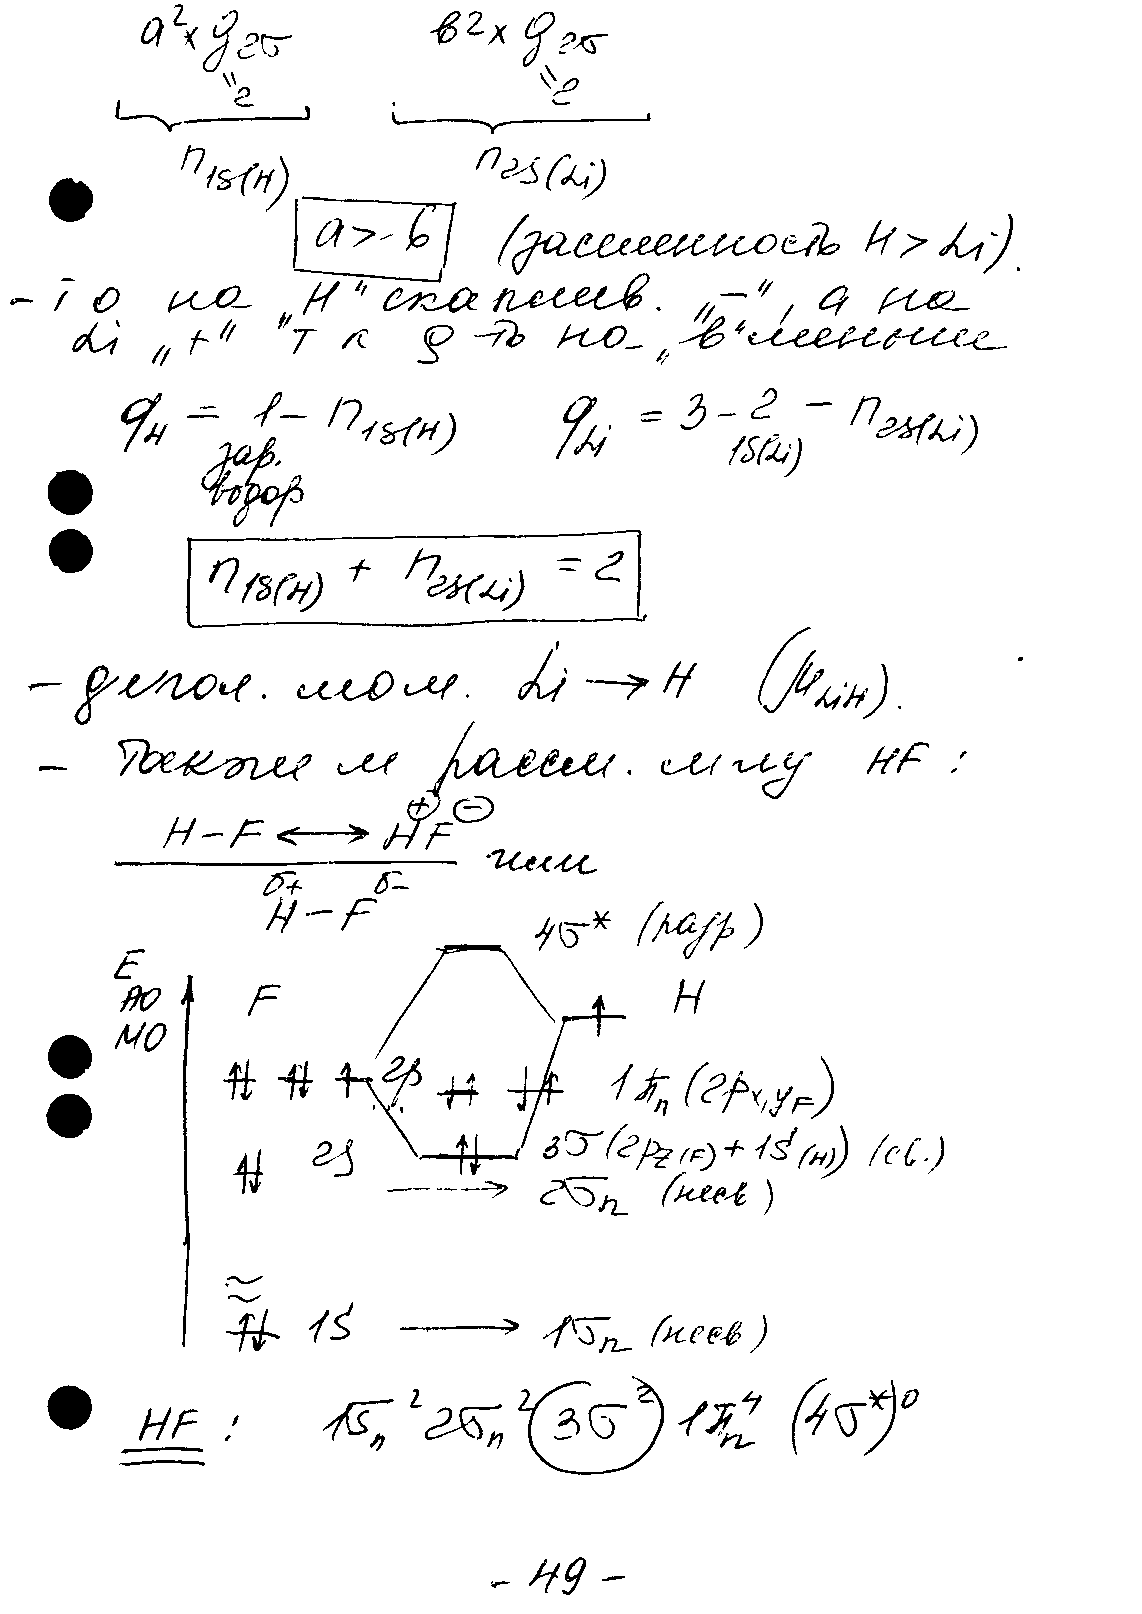 a² × g₂σ    b² × g₂σ
=2    =2
n1s(H)    n2s(Li)
a > b (заселенность H > Li).
- То на „H“ скаплив. „−“, а на
Li „+“ т к g-ть на „b“ меньше
qH = 1 − n1s(H)    qLi = 3 − 2 − n2s(Li)
зар.    1s(Li)
водор
n1s(H) + n2s(Li) = 2
- дипол. мом. Li → H (μLiH).
- Также м рассм. м-лу HF :
H − F ⟷ H⊕ F⊖
или
δ+ δ−
H − F
4σ* (разр)
E
АО    F    H
МО
2p    1πn (2px,yF)
2s    3σ (2pz(F) + 1s(H)) (св.)
→ 2σn (несв)
1s → 1σn (несв)
HF : 1σn² 2σn² 3σ² 1πn⁴ (4σ*)⁰
- 49 -